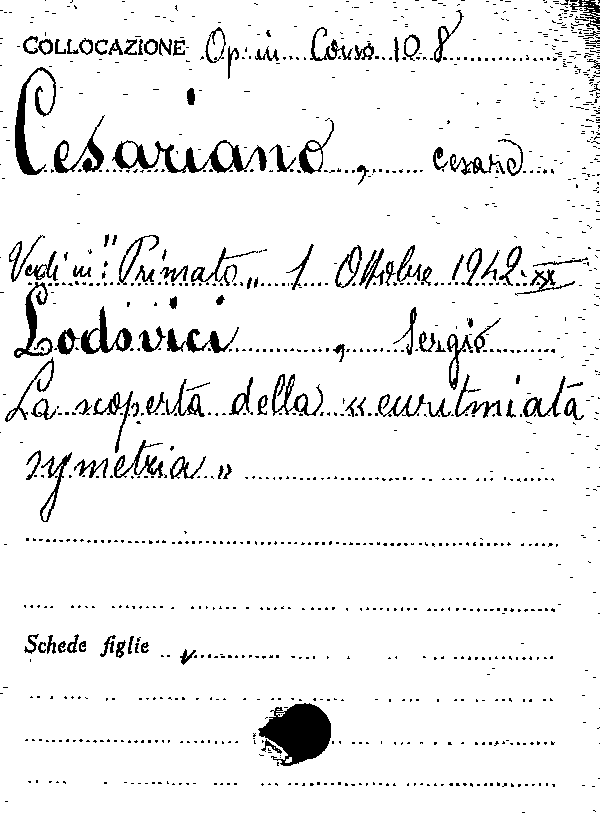 COLLOCAZIONE Op. in Corso 10 8
Cesariano, Cesare
Vedi in: "Primato„ 1 Ottobre 1942·XX
Lodovici, Sergio
La scoperta della « euritmiata
symetria »
Schede figlie